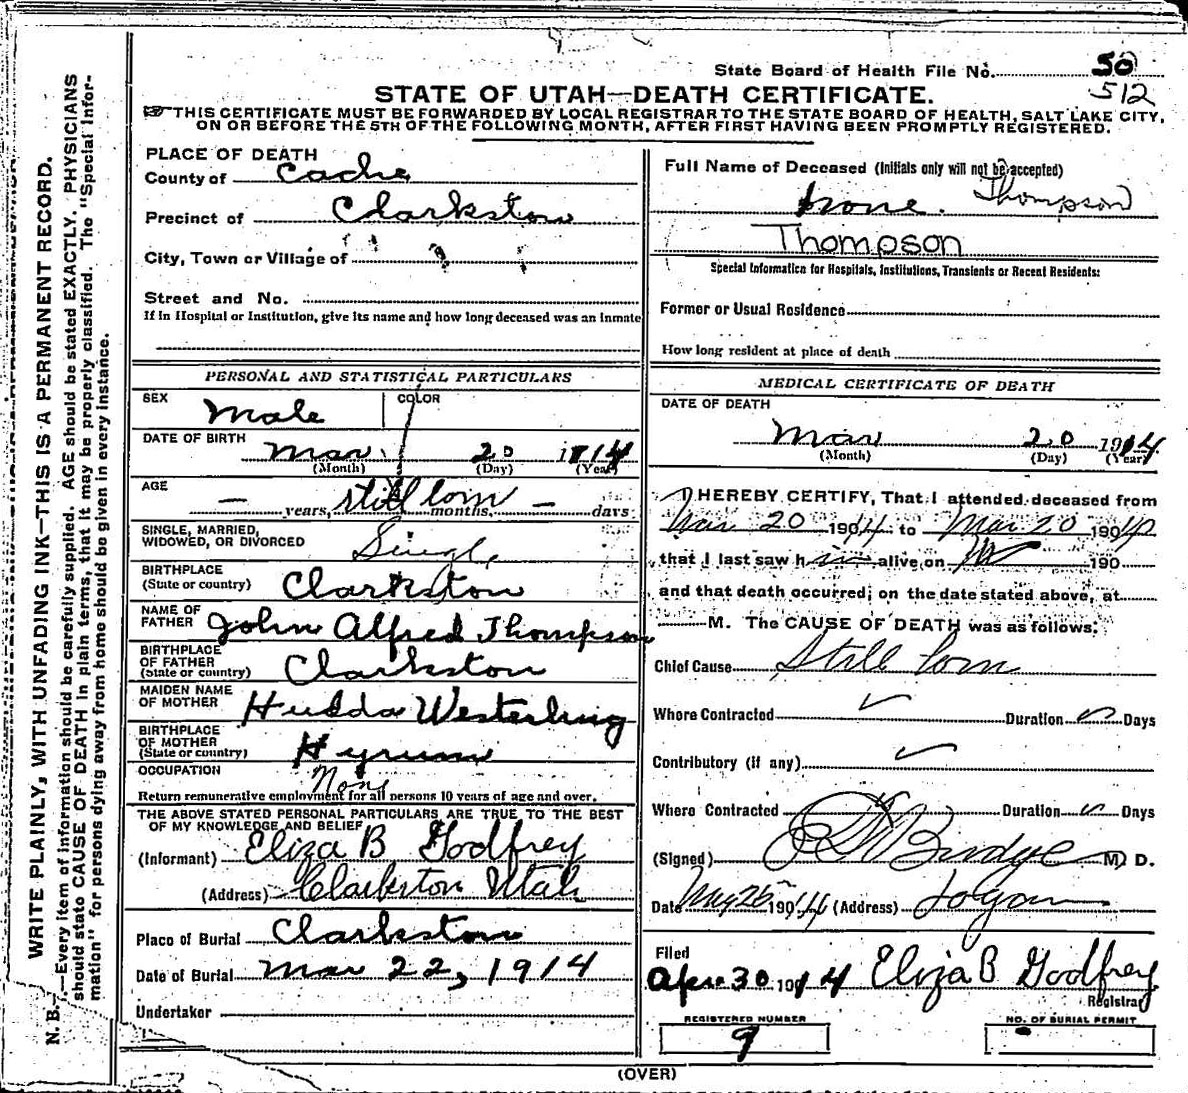 State Board of Health File No. 50
512
STATE OF UTAH—DEATH CERTIFICATE.
THIS CERTIFICATE MUST BE FORWARDED BY LOCAL REGISTRAR TO THE STATE BOARD OF HEALTH, SALT LAKE CITY,
ON OR BEFORE THE 5TH OF THE FOLLOWING MONTH, AFTER FIRST HAVING BEEN PROMPTLY REGISTERED.
N. B.—Every item of information should be carefully supplied. AGE should be stated EXACTLY. PHYSICIANS
should state CAUSE OF DEATH in plain terms, that it may be properly classified. The "Special Infor-
mation" for persons dying away from home should be given in every instance.
WRITE PLAINLY, WITH UNFADING INK—THIS IS A PERMANENT RECORD.
PLACE OF DEATH
County of Cache
Precinct of Clarkston
City, Town or Village of " " "
Street and No.
If in Hospital or Institution, give its name and how long deceased was an inmate
PERSONAL AND STATISTICAL PARTICULARS
SEX Male COLOR
DATE OF BIRTH Mar. 20 1914
(Month) (Day) (Year)
AGE — years, still born months, — days
SINGLE, MARRIED,
WIDOWED, OR DIVORCED Single
BIRTHPLACE
(State or country) Clarkston
NAME OF
FATHER John Alfred Thompson
BIRTHPLACE
OF FATHER
(State or country) Clarkston
MAIDEN NAME
OF MOTHER Hulda Westerling
BIRTHPLACE
OF MOTHER
(State or country) Hyrum
OCCUPATION None
Return remunerative employment for all persons 10 years of age and over.
THE ABOVE STATED PERSONAL PARTICULARS ARE TRUE TO THE BEST
OF MY KNOWLEDGE AND BELIEF
(Informant) Eliza B Godfrey
(Address) Clarkston Utah
Place of Burial Clarkston
Date of Burial Mar 22, 1914
Undertaker
Full Name of Deceased (Initials only will not be accepted)
None. Thompson
Thompson
Special Information for Hospitals, Institutions, Transients or Recent Residents:
Former or Usual Residence
How long resident at place of death
MEDICAL CERTIFICATE OF DEATH
DATE OF DEATH
Mar 20 1914
(Month) (Day) (Year)
I HEREBY CERTIFY, That I attended deceased from
Mar 20 1914 to Mar 20 1914
that I last saw him alive on 190
and that death occurred, on the date stated above, at
M. The CAUSE OF DEATH was as follows:
Chief Cause Still born
Where Contracted ✓ Duration ✓ Days
Contributory (if any) ✓
Where Contracted Duration ✓ Days
(Signed) Budge M. D.
Date 1914 (Address) Logan
Filed
Apr 30 1914 Eliza B Godfrey
Registrar
REGISTERED NUMBER
9
NO. OF BURIAL PERMIT
(OVER)